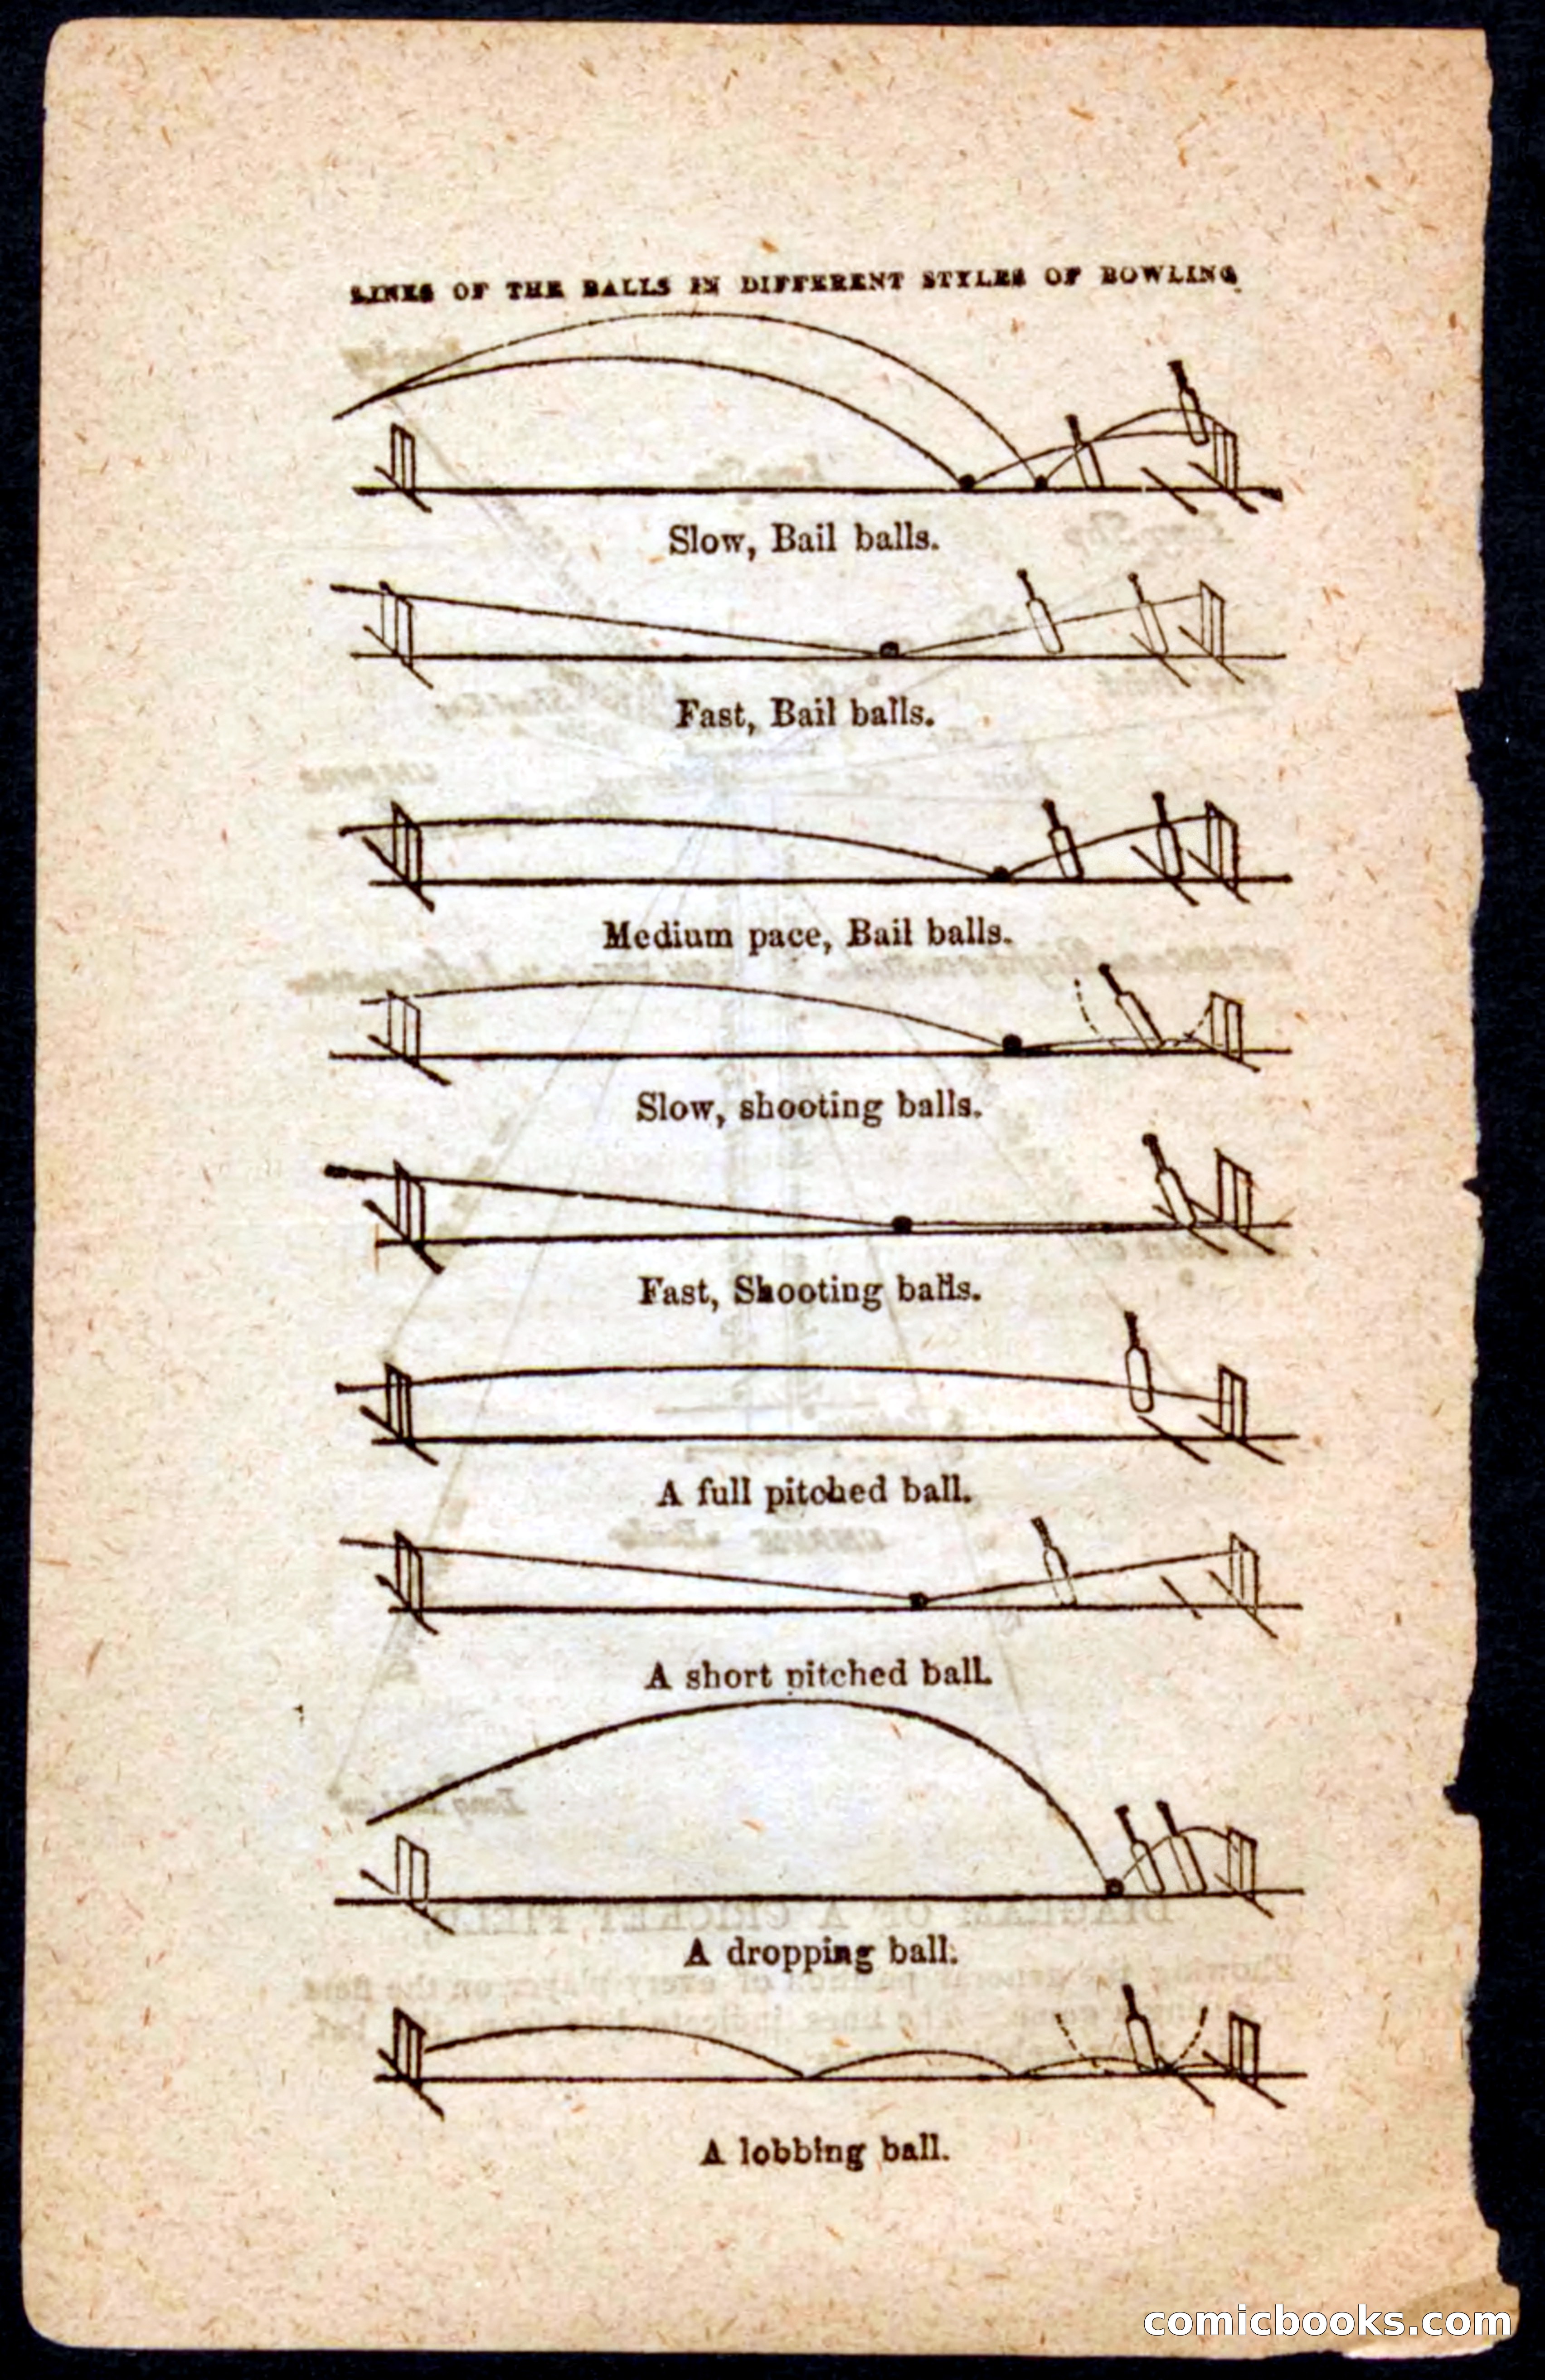 LINES OF THE BALLS IN DIFFERENT STYLES OF BOWLING
Slow, Bail balls.
Fast, Bail balls.
Medium pace, Bail balls.
Slow, shooting balls.
Fast, Shooting balls.
A full pitched ball.
A short pitched ball.
A dropping ball.
A lobbing ball.
comicbooks.com